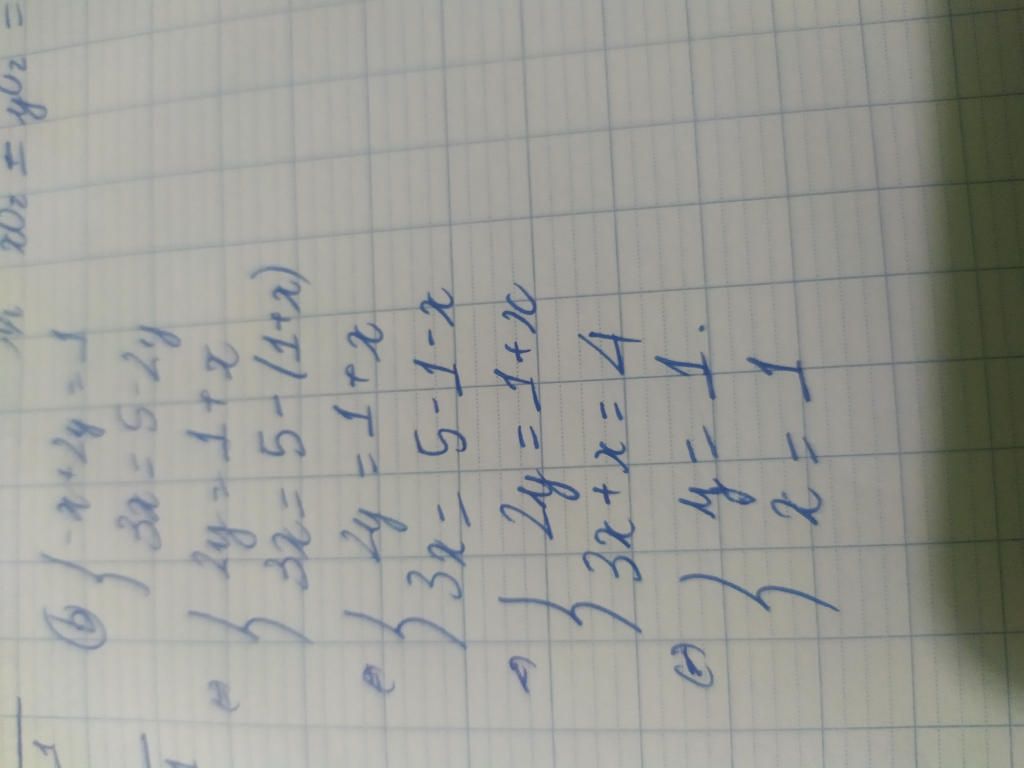 b) { -x + 2y = 1
3x = 5 - 2y
⇔ { 2y = 1 + x
3x = 5 - (1 + x)
⇔ { 2y = 1 + x
3x = 5 - 1 - x
⇔ { 2y = 1 + x
3x + x = 4
⇔ { y = 1.
x = 1